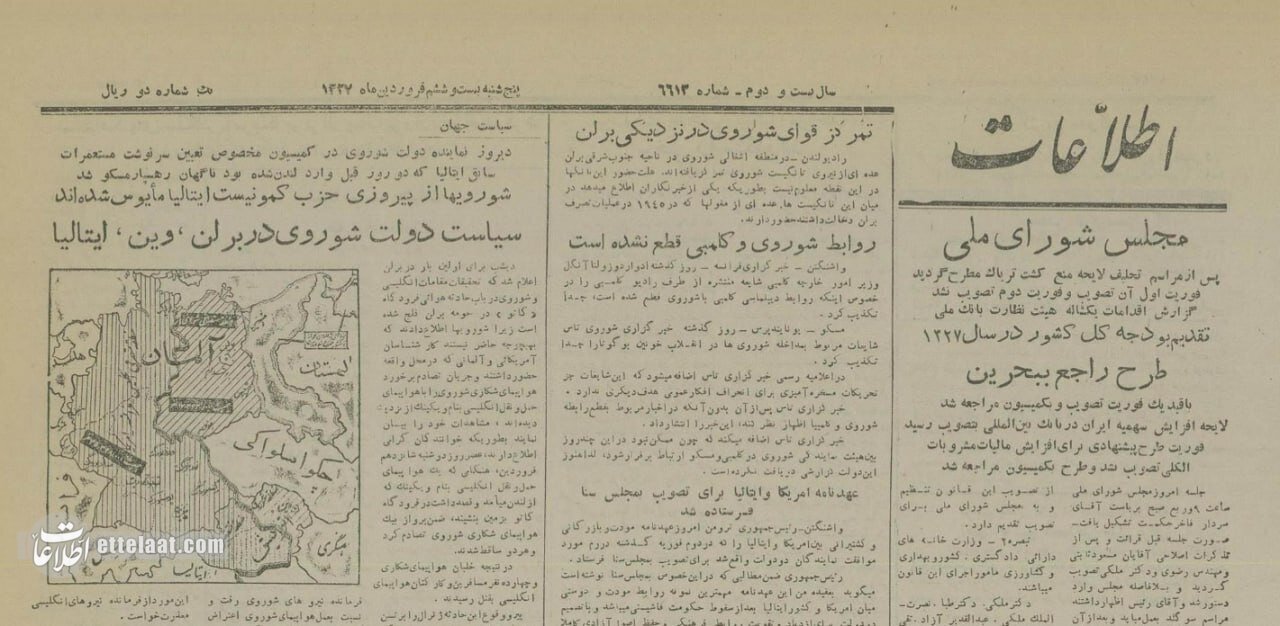 سال بیست و دوم - شماره ۶۶۱۳
پنج‌شنبه بیست و ششم فروردین ماه ۱۳۲۷
تک شماره دو ریال
اطلاعات
مجلس شورای ملی
پس از مراسم تحلیف لایحه منع کشت تریاک مطرح گردید
فوریت اول آن تصویب و فوریت دوم تصویب نشد
گزارش اقدامات یکساله هیئت نظارت بانک ملی
تقدیم بودجه کل کشور در سال ۱۳۲۷
طرح راجع ببحرین
باقید یک فوریت تصویب و بکمیسیون مراجعه شد
لایحه افزایش سهمیه ایران در بانک بین‌المللی بتصویب رسید
فوریت طرح پیشنهادی برای افزایش مالیات مشروبات
الکلی تصویب شد و طرح بکمیسیون مراجعه شد
جلسه امروز مجلس شورای ملی
ساعت ۹ و ربع صبح بریاست آقای
سردار فاخر حکمت تشکیل یافت-
صورت جلسه قبل قرائت و پس از
از تصویب این قانون تنظیم
و به مجلس شورای ملی برای
تصویب تقدیم دارد.
تبصره ۲ - وزارت خانه های
دارائی دادگستری. کشور و بهداری
و کشاورزی مامور اجرای این قانون
میباشند.
تمرکز قوای شوروی در نزدیکی برلن
رادیو لندن - در منطقه اشغالی شوروی در ناحیه جنوب شرقی برلن
عده ای از نیروی تانکیست شوروی تمرکز یافته‌اند. علت حضور این تانکها
در این نقطه معلوم نیست بطوریکه یکی از خبرنگاران اطلاع میدهد در
برلن دخالت داشتند حضور دارند.
روابط شوروی و کلمبی قطع نشده است
واشنگتن - خبر گزاری فرانسه - روز گذشته ادواردو زولتا آنگل
وزیر امور خارجه کلمبی شایعه منتشره از طرف رادیو کلمبی را در
خصوص اینکه روابط دیپلماسی کلمبی با شوروی قطع شده است، جداً
تکذیب کرد.
مسکو - یونایتدپرس - روز گذشته خبر گزاری شوروی تاس
شایعات مربوط بمداخله شوروی ها در انقلاب خونین بوگوتا را جداً
تکذیب کرد.
در اعلامیه رسمی خبر گزاری تاس اضافه میشود که این شایعات جز
تحریکات مسخره آمیزی برای انحراف افکار عمومی هدف دیگری ندارد.
خبر گزاری تاس پس از آن بدون آنکه در اخبار مربوط بقطع رابطه
شوروی و کلمبیا اظهار نظر کند، این خبر را انتشار داد.
خبر گزاری تاس اضافه میکند که چون ممکن نبود در این چند روز
بین هیئت نمایندگی شوروی در کلمبی و مسکو ارتباط برقرار شود، لذا هنوز
این دولت گزارشی دریافت نکرده است.
عهدنامه امریکا و ایتالیا برای تصویب بمجلس سنا
فرستاده شد
واشنگتن - رئیس جمهوری ترومن امروز عهدنامه مودت و بازرگانی
و کشتیرانی بین امریکا و ایتالیا را که در دوم فوریه گذشته در رم مورد
موافقت نمایندگان دو دولت واقع شد برای تصویب بمجلس سنا فرستاد.
رئیس جمهوری ضمن مطالبی که در این خصوص بمجلس سنا نوشته است
میگوید بعقیده من این عهدنامه مهمترین نمونه روابط مودت و دوستی
میان امریکا و کشور ایتالیا بعد از سقوط حکومت فاشیستی میباشد و با تصمیم
سیاست جهان
دیروز نماینده دولت شوروی در کمیسیون مخصوص تعیین سرنوشت مستعمرات
سابق ایتالیا که دو روز قبل وارد لندن شده بود ناگهان رهسپار مسکو شد
شورویها از پیروزی حزب کمونیست ایتالیا مأیوس شده‌اند
سیاست دولت شوروی در برلن، وین، ایتالیا
دیشب برای اولین بار در برلن
اعلام شد که تحقیقات مقامات انگلیسی
و شوروی در باب حادثه هوائی فرودگاه
«گاتو» در حومه برلن فلج شده
است زیرا شورویها اطلاع دادند که
بهیچوجه حاضر نیستند کارشناسان
آمریکائی و آلمانی که در محل واقعه
حضور داشتند و جریان تصادم برخورد
هواپیمای شکاری شوروی را با هواپیمای
حمل و نقل انگلیسی بنام ویکینگ از نزدیک
دیده‌اند، مشاهدات خود را بیان
نمایند بطوریکه خوانندگان گرامی
اطلاع دارند، عصر روز دوشنبه شانزدهم
فروردین، هنگامی که یک هواپیمای
حمل و نقل انگلیسی بنام ویکینگ که
از لندن میآمد و قصد داشت در فرودگاه
گاتو بزمین بنشیند، ضمن پرواز بیک
هواپیمای شکاری شوروی تصادم کرد
و هر دو ساقط شدند.
در نتیجه خلبان هواپیمای شکاری
و چهارده نفر مسافرین و کارکنان هواپیمای
انگلیسی بقتل رسیدند.
فرمانده نیروهای شوروی رفت و
نسبت بعمل هواپیمای شوروی اعتراض
این مورد از فرمانده نیروهای انگلیسی
معذرت خواست.
آلمان
لهستان
چکواسلواکی
فرانسه
مجارستان
ایتالیا
اطلاعات
ettelaat.com